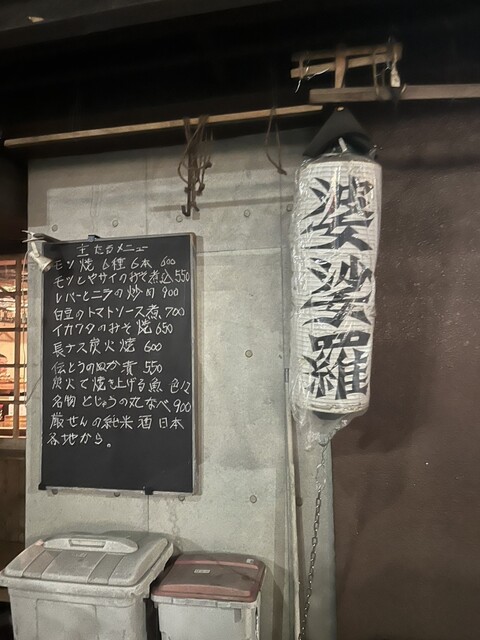 主たるメニュー
モツ焼 6種 6本 600
モツしやサイのみそ煮込 550
レバーとニラの炒め 900
白豆のトマトソース煮 700
イカワタのみそ焼 650
長ナス炭火焼 600
伝とうのぬか漬 550
炭火で焼き上げる魚 色々
名物 どじょうの丸なべ 900
厳せんの純米酒 日本
各地から。
婆娑羅